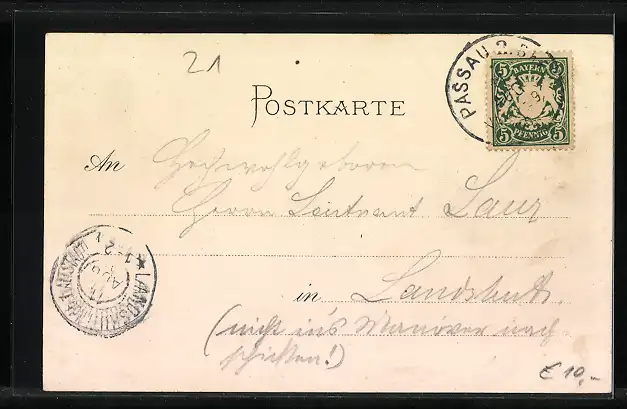 21
POSTKARTE
PASSAU 2.
5 BAYERN 5
5 PFENNIG 5
An Hochwohlgeboren
Herrn Leutnant Lanz
in Landshut.
(nicht in's Manöver nach-
schicken!)
LANDSHUT
€ 10,-